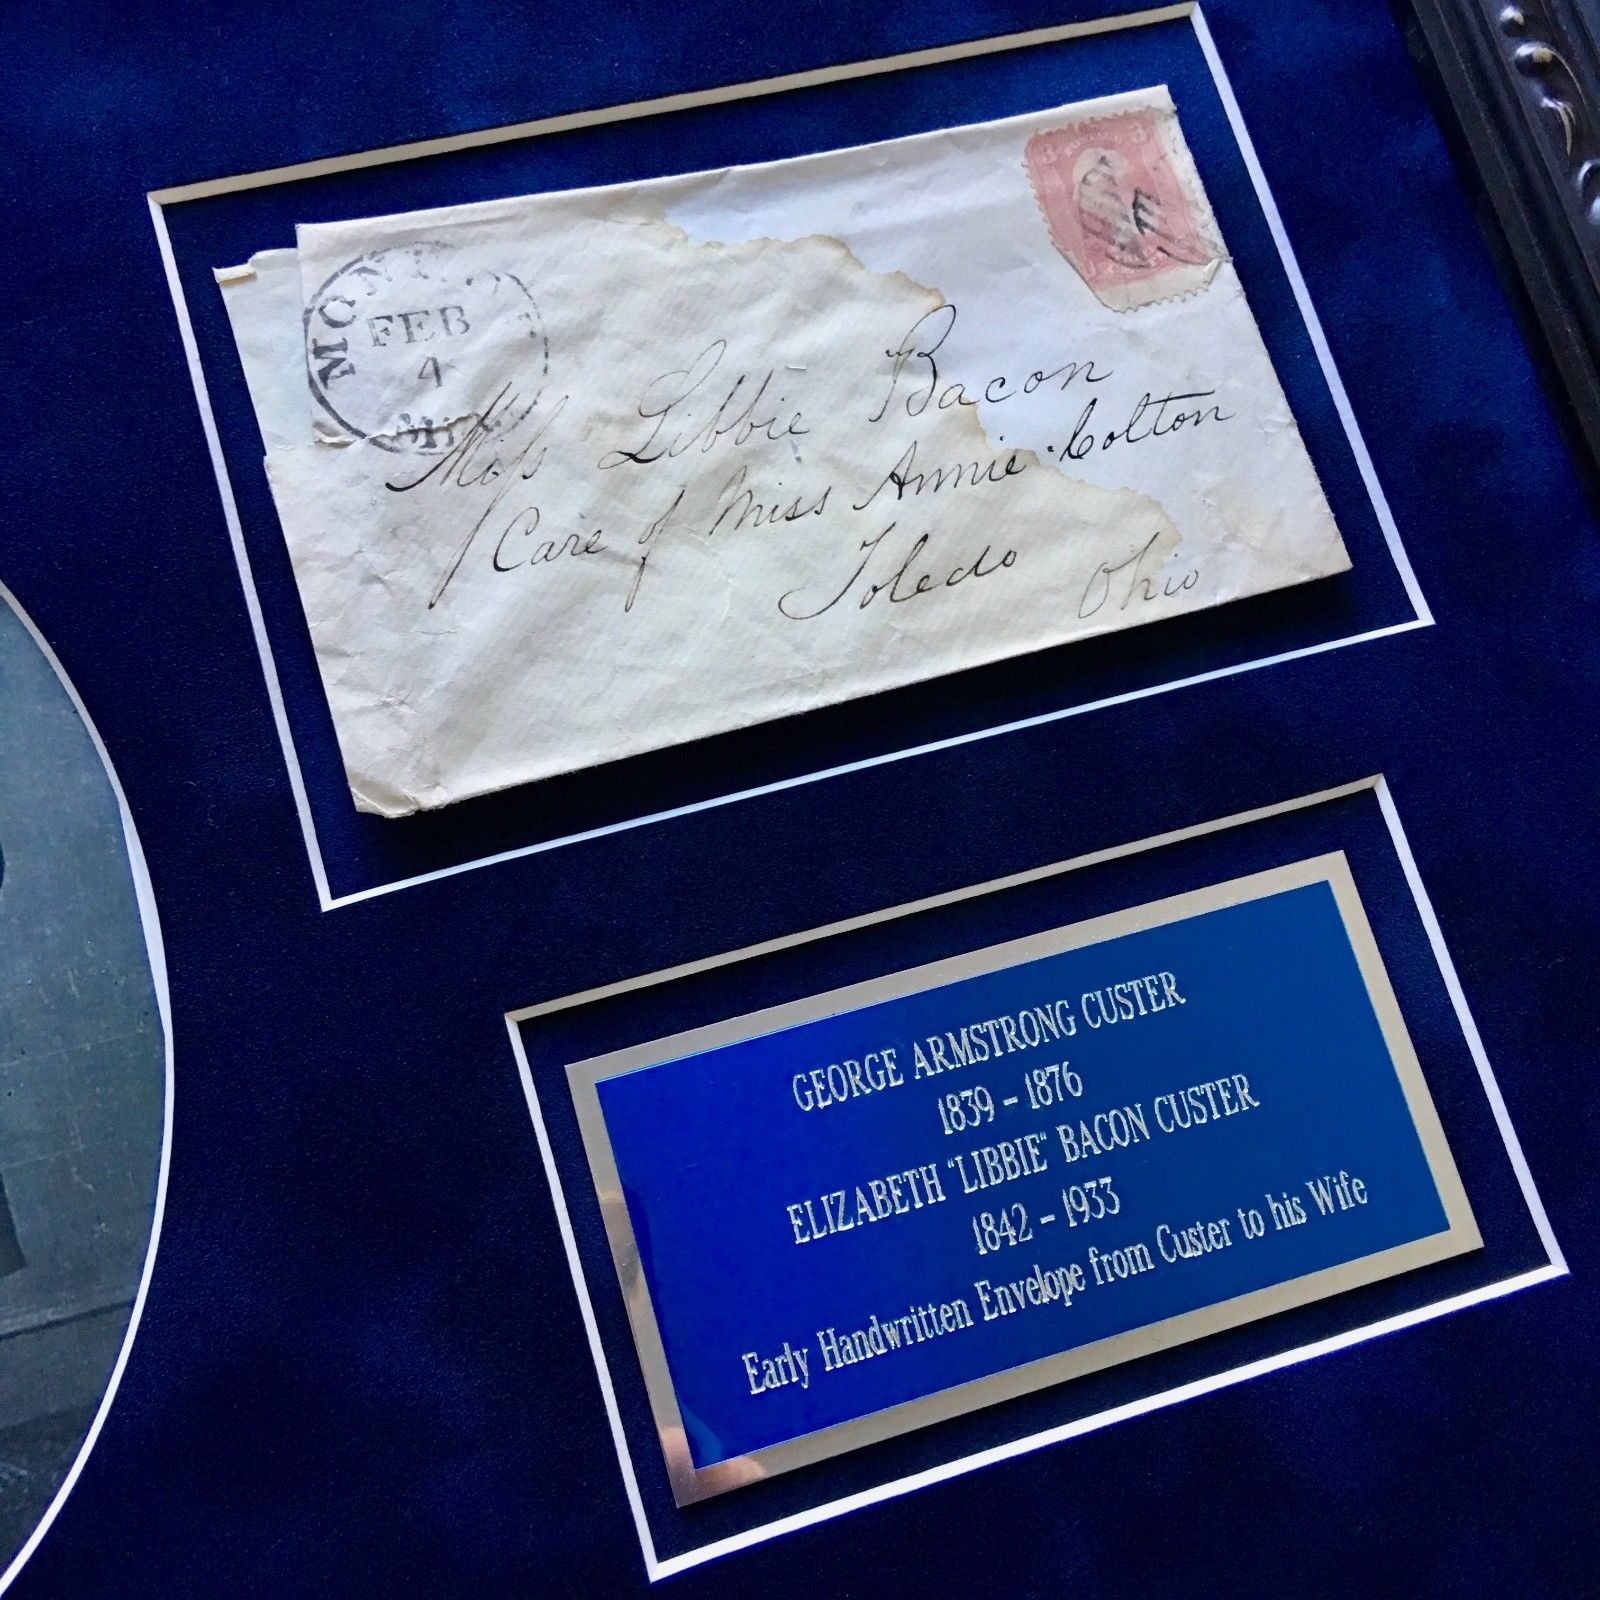 MONROE
FEB
4
Mich
3 3
Miss Libbie Bacon
Care of Miss Annie Colton
Toledo Ohio
GEORGE ARMSTRONG CUSTER
1839 - 1876
ELIZABETH "LIBBIE" BACON CUSTER
1842 - 1933
Early Handwritten Envelope from Custer to his Wife